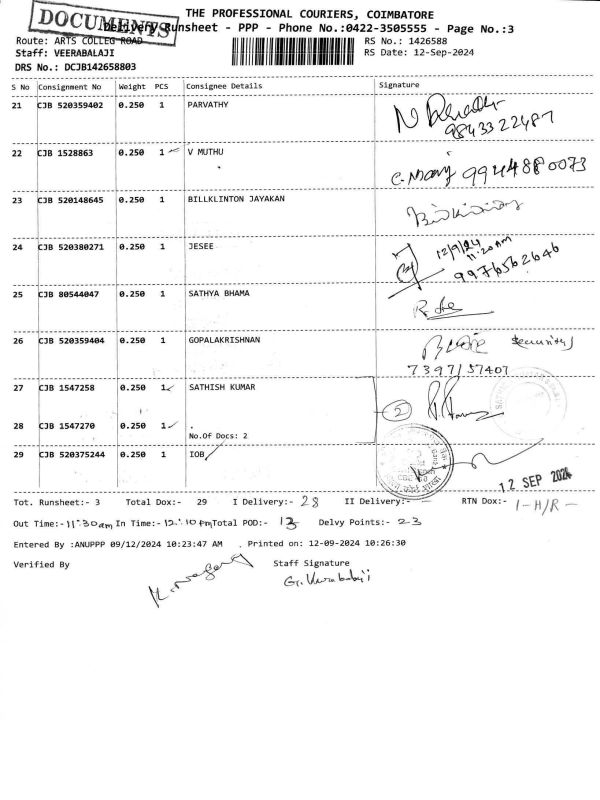 DOCUMENTS
THE PROFESSIONAL COURIERS, COIMBATORE
Delivery Runsheet - PPP - Phone No.:0422-3505555 - Page No.:3
Route: ARTS COLLEG ROAD
RS No.: 1426588
Staff: VEERABALAJI
RS Date: 12-Sep-2024
DRS No.: DCJB142658803
S No Consignment No Weight PCS Consignee Details Signature
21 CJB 520359402 0.250 1 PARVATHY
9843322487
22 CJB 1528863 0.250 1 V MUTHU
9944880073
23 CJB 520148645 0.250 1 BILLKLINTON JAYAKAN
24 CJB 520380271 0.250 1 JESEE
12/9/24
11.20 AM
9976562646
25 CJB 80544047 0.250 1 SATHYA BHAMA
26 CJB 520359404 0.250 1 GOPALAKRISHNAN
security
7397157407
27 CJB 1547258 0.250 1 SATHISH KUMAR
2
28 CJB 1547270 0.250 1 .
No.Of Docs: 2
29 CJB 520375244 0.250 1 IOB
12 SEP 2024
Tot. Runsheet:- 3 Total Dox:- 29 I Delivery:- 28 II Delivery:- — RTN Dox:- 1-H/R-
Out Time:- 11:30am In Time:- 12:10 pm Total POD:- 13 Delvy Points:- 23
Entered By :ANUPPP 09/12/2024 10:23:47 AM . Printed on: 12-09-2024 10:26:30
Verified By Staff Signature